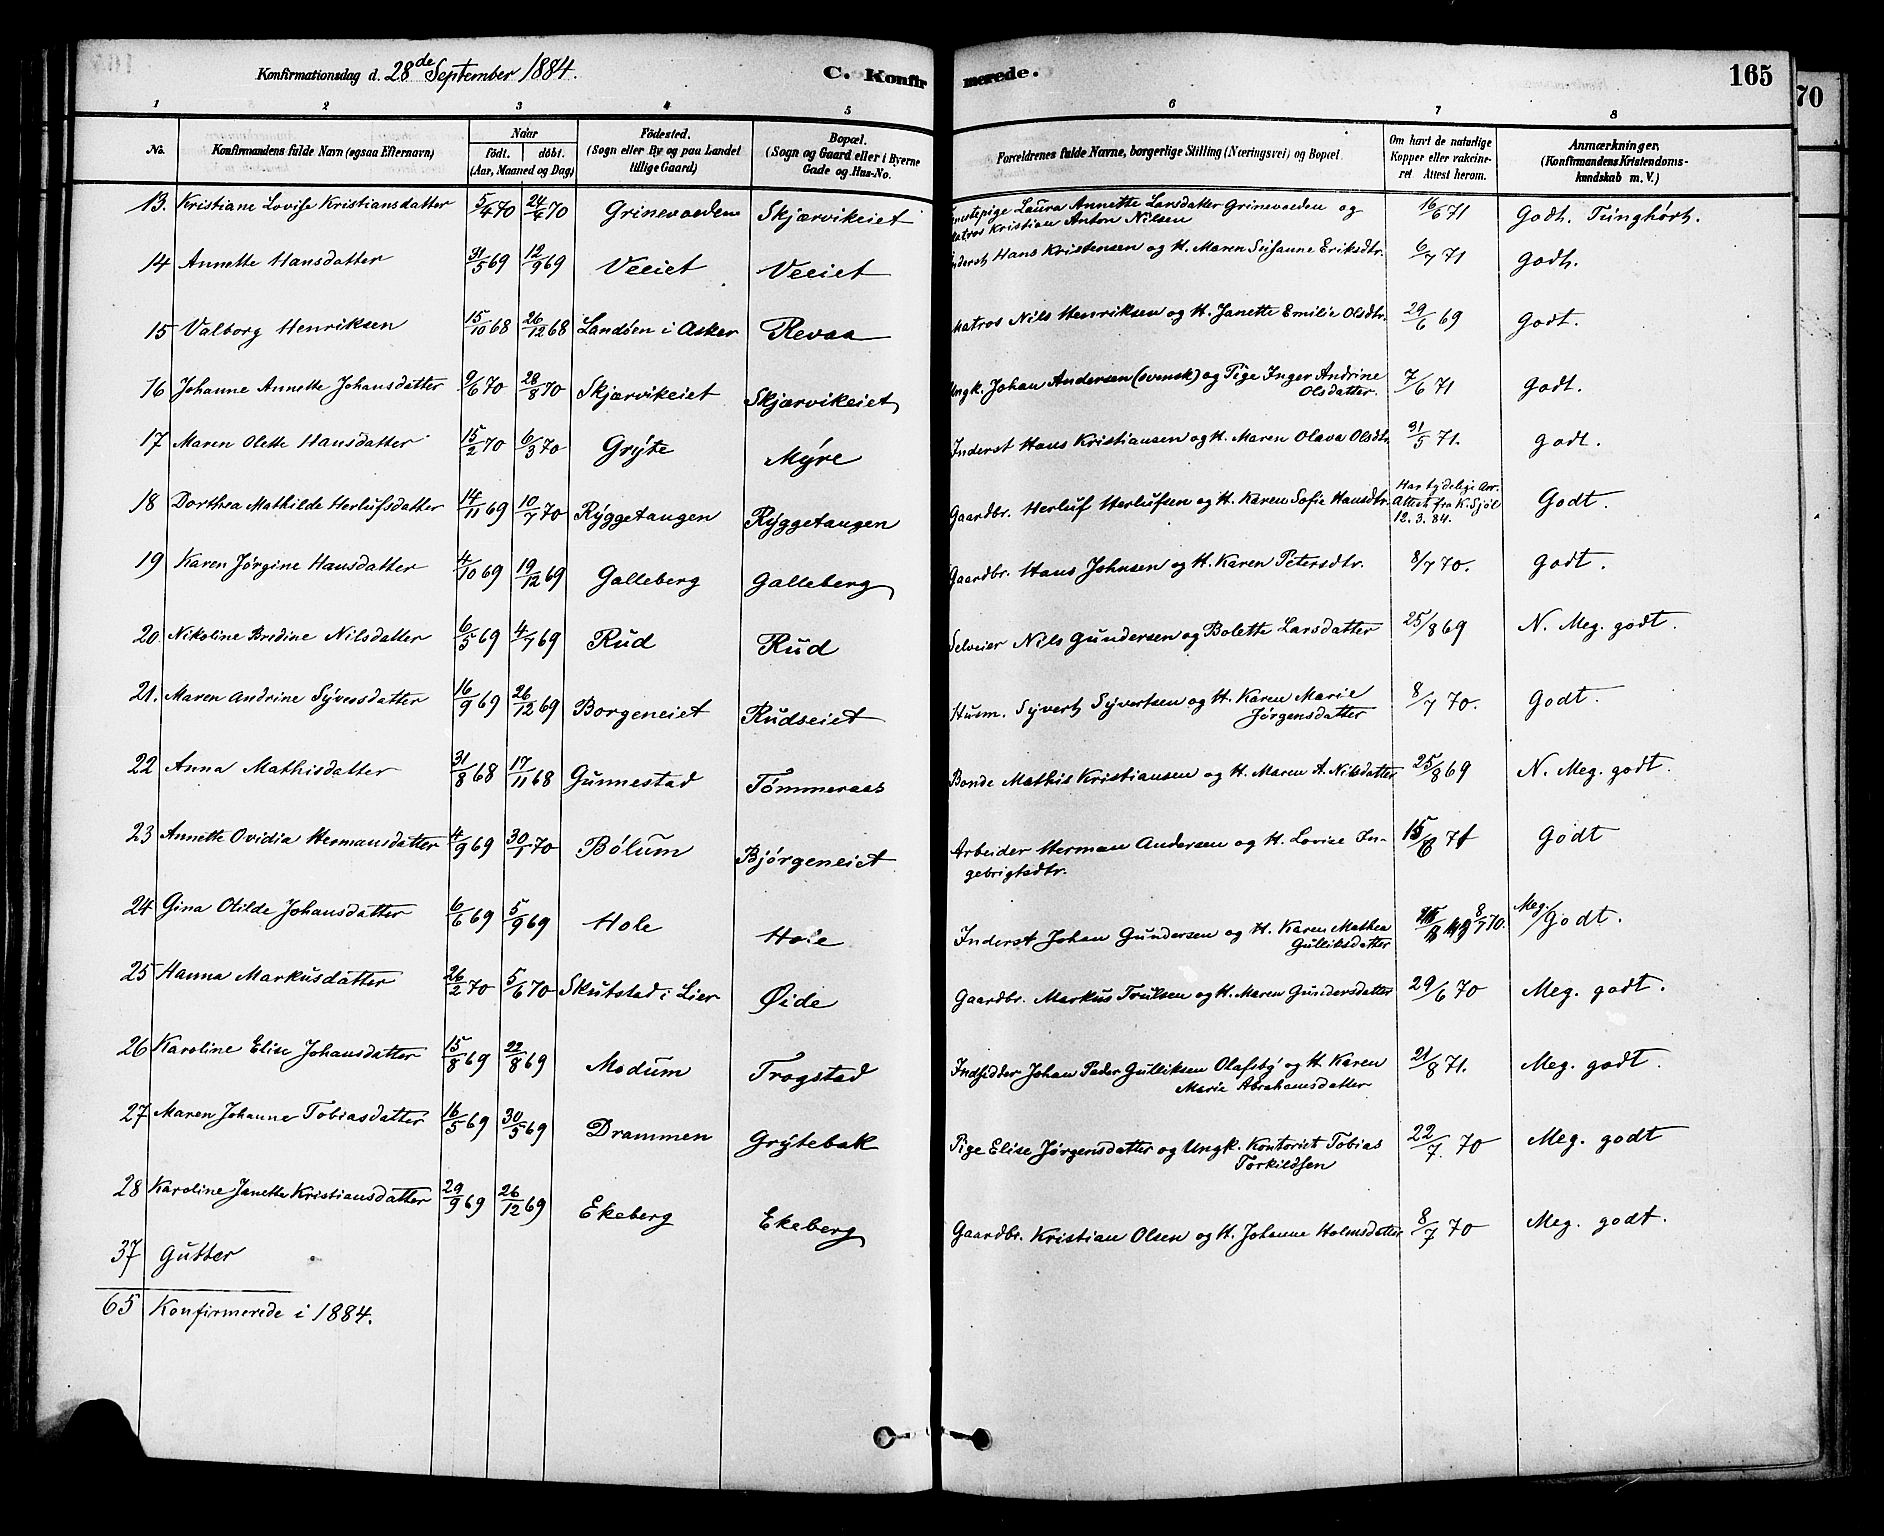 Konfirmationsdag d. 28de September 1884.
C. Konfirmerede.
165
70
1 2 3 4 5 6 7 8
No.
Konfirmandens fulde Navn (ogsaa Efternavn)
Naar
födt. döbt.
(Aar, Maaned og Dag)
Födested.
(Sogn eller By og paa Landet
tillige Gaard)
Bopæl.
(Sogn og Gaard eller i Byerne
Gade og Hus-No.
Forældrenes fulde Navne, borgerlige Stilling (Næringsvei) og Bopæl.
Om havt de naturlige
Kopper eller vakcine-
ret Attest herom.
Anmærkninger,
(Konfirmandens Kristendoms-
kundskab m. V.)
13. Kristiane Lovise Kristiansdatter 5/4 70 24/6 70 Grinevoeden Skjærvikeiet Laura Annette Larsdatter Grinevoeden og 16/6 71 Godt. Tunghört.
Matros Kristian Anton Nilsen
14 Annette Hansdatter 31/5 69 12/9 69 Veeiet Veeiet Inderst Hans Kristensen og H. Maren Susanne Eriksdtr. 6/7 71 Godt.
15 Valborg Henriksen 15/10 68 26/12 68 Landöen i Asker Revaa Matros Nils Henriksen og H. Janette Emilie Olsdtr. 29/6 69 Godt.
16 Johanne Annette Johansdatter 9/6 70 28/8 70 Skjærvikeiet Skjærvikeiet Ungk. Johan Andersen (svensk) og Pige Inger Andrine 7/6 71 Godt.
Olsdatter.
17 Maren Olette Hansdatter 15/2 70 6/3 70 Grÿte Mÿre Inderst Hans Kristiansen og H. Maren Olava Olsdtr. 31/5 71. Godt.
18 Dorthea Mathilde Herlufsdatter 14/11 69 10/7 70 Rÿggetangen Rÿggetangen Gaardbr. Herluf Herlufsen og H. Karen Sofie Hansdtr. Har tydelige Ar. Godt.
Attest fra K. Sjöl
12. 3. 84.
19 Karen Jørgine Hansdatter 4/10 69 19/12 69 Galleberg Galleberg Gaardbr. Hans Johnsen og H. Karen Petersdtr. 8/7 70. Godt.
20. Nikoline Bredine Nilsdatter 6/5 69 4/7 69 Rud Rud Selveier Nils Gundersen og Bolette Larsdatter 25/8 69 N. Meg. godt.
21. Maren Andrine Sÿversdatter 16/9 69 26/12 69 Borgeneiet Rudseiet Husm. Sÿvert Sÿvertsen og H. Karen Marie 8/7 70. Godt.
Jørgensdatter
22 Anna Mathisdatter 31/8 68 17/11 68 Gunnestad Tömmeraas Bonde Mathis Kristiansen og H. Maren A. Nilsdatter 25/8 69 N. Meg. godt.
23 Annette Ovidia Hermansdatter 4/9 69 30/1 70 Bólum Bjørgeneiet Arbeider Herman Andersen og H. Lovise In- 15/6 71 Godt
gebrigtsdtr.
24 Gina Otilde Johansdatter 6/6 69 5/9 69 Hole Hole Inderst Johan Gundersen og H. Karen Mathea 8/7 70. Meg. Godt.
Gulliksdatter
25 Hanna Markusdatter 26/2 70 5/6 70 Skutstad i Lier Øide Gaardbr. Markus Trulsen og H. Maren Gundersdatter 29/6 70 Meg. godt.
26 Karoline Elise Johansdatter 15/8 69 22/8 69 Modum Trogstad Indsidder Johan Peder Gulliksen Olafsbÿ og H. Karen 21/8 71. Meg. godt.
Marie Abrahamsdatter
27 Maren Johanne Tobiasdatter 16/5 69 30/5 69 Drammen Grÿtebak Pige Elise Jørgensdatter og Ungk. Kontorist Tobias 22/7. 70 Meg. godt
Torkildsen
28 Karoline Janette Kristiansdatter 29/9 69 26/12 69 Ekeberg Ekeberg Gaardbr. Kristian Olsen og H. Johanne Holmsdatter 8/7 70 Meg. godt.
37 Gutter
65 Konfirmerede i 1884.